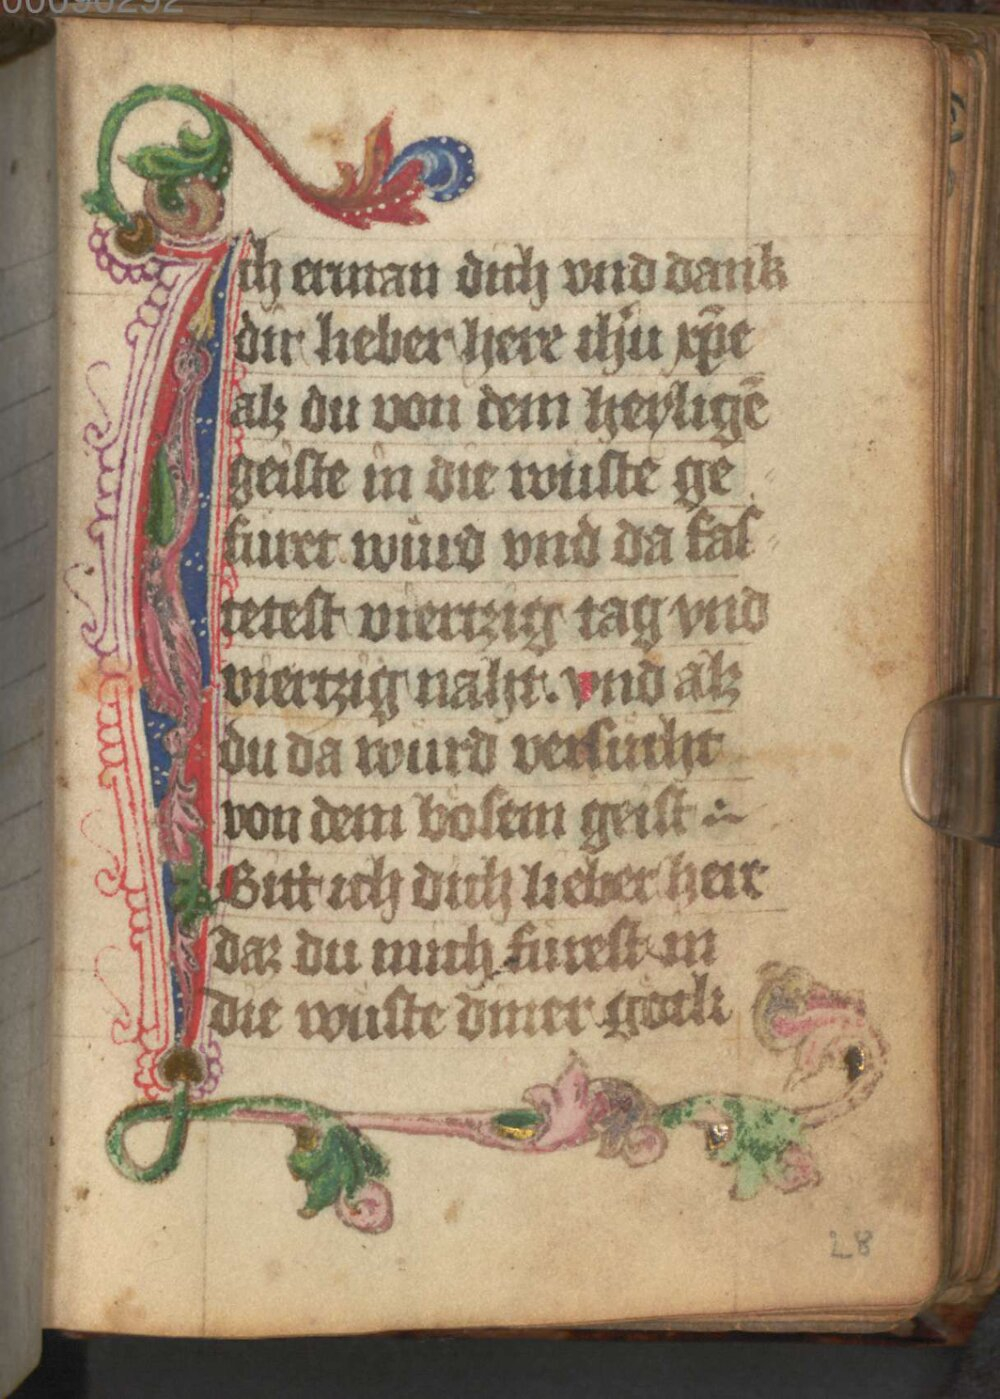 00090292
Ich erman dich vnd dank
dir lieber here ihu xp̄e
alz du von dem heyligē
geiste in die wüste ge
füret würd vnd da fas
tetest viertzig tag vnd
viertzig naht. vnd alz
du da wurd versucht
von dem bösem geist :~
Bitt ich dich lieber herr
daz du mich fürest in
die wüste diner götli
28